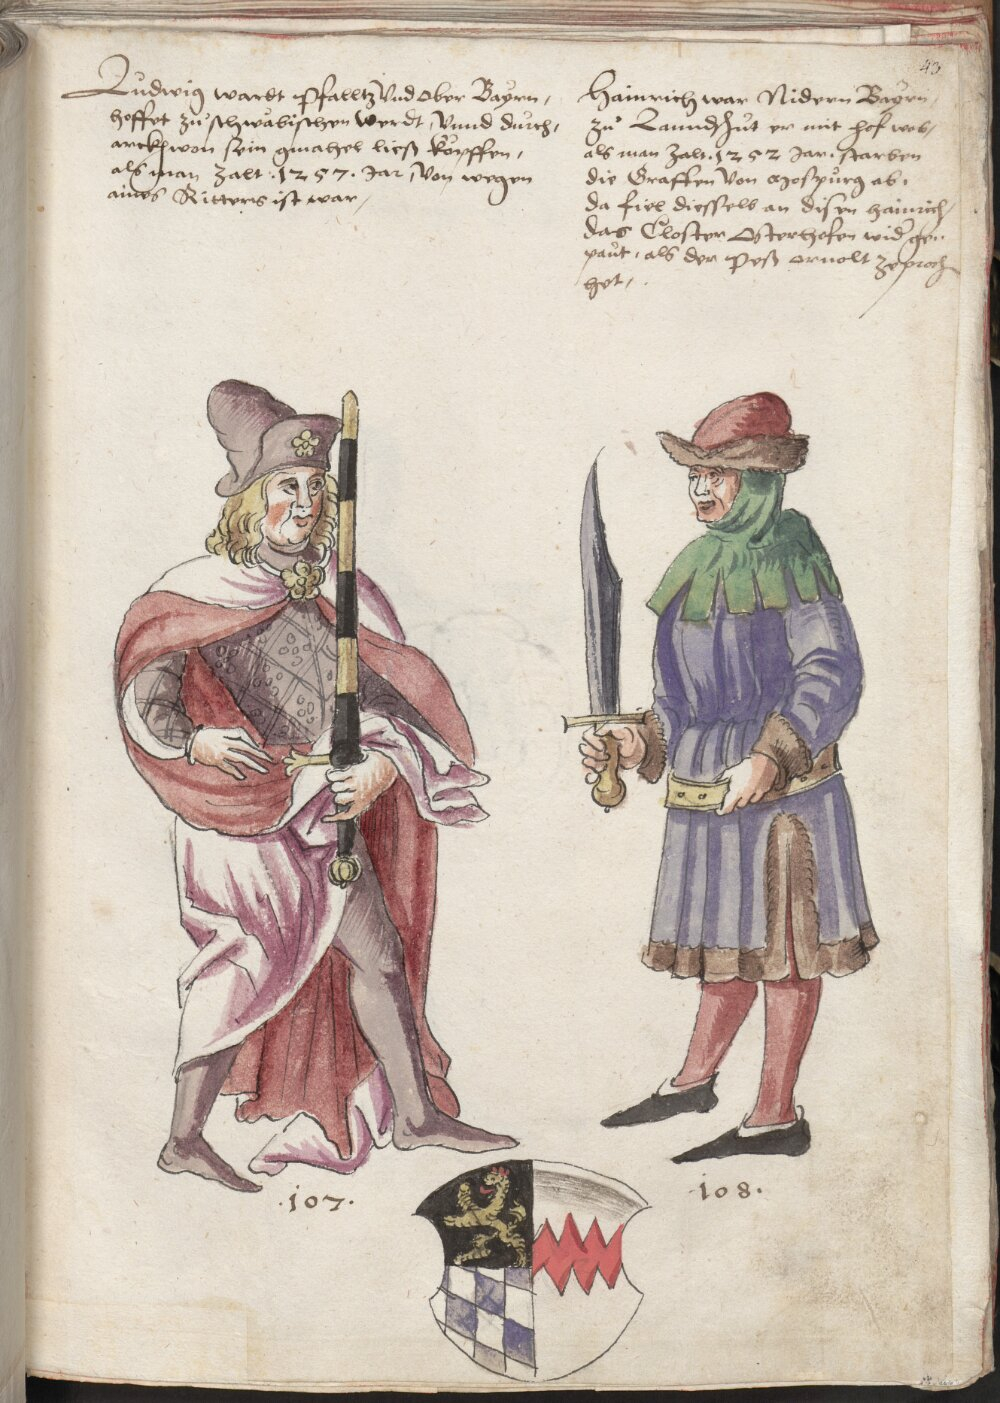 43
Ludwig wardt Pfalltz Vnd Ober Bayrn,
hoffet zu schwäbischen werdt, Vnnd durch
arckwon sein gmahel ließ köpffen,
als man Zalt .1257. Jar, Von wegen
aines Ritters ist war,
Hainrich war Nidern Bayrn,
zu Lanndßhut er mit hof was,
als man Zalt .1252 Jar. starben
die Graffen Von Mospurg ab.
da fiel diesselb an disen hainrich,
das Closter Osterhofen wid ge=
paut, als der Peß Arnolt zeproch
het,
.107.
.108.